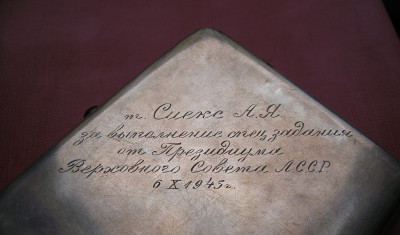 т. Сиекс А.Я.
за выполнение спец. задания
от Президиума
Верховного Совета Л.ССР.
6 X 1945 г.